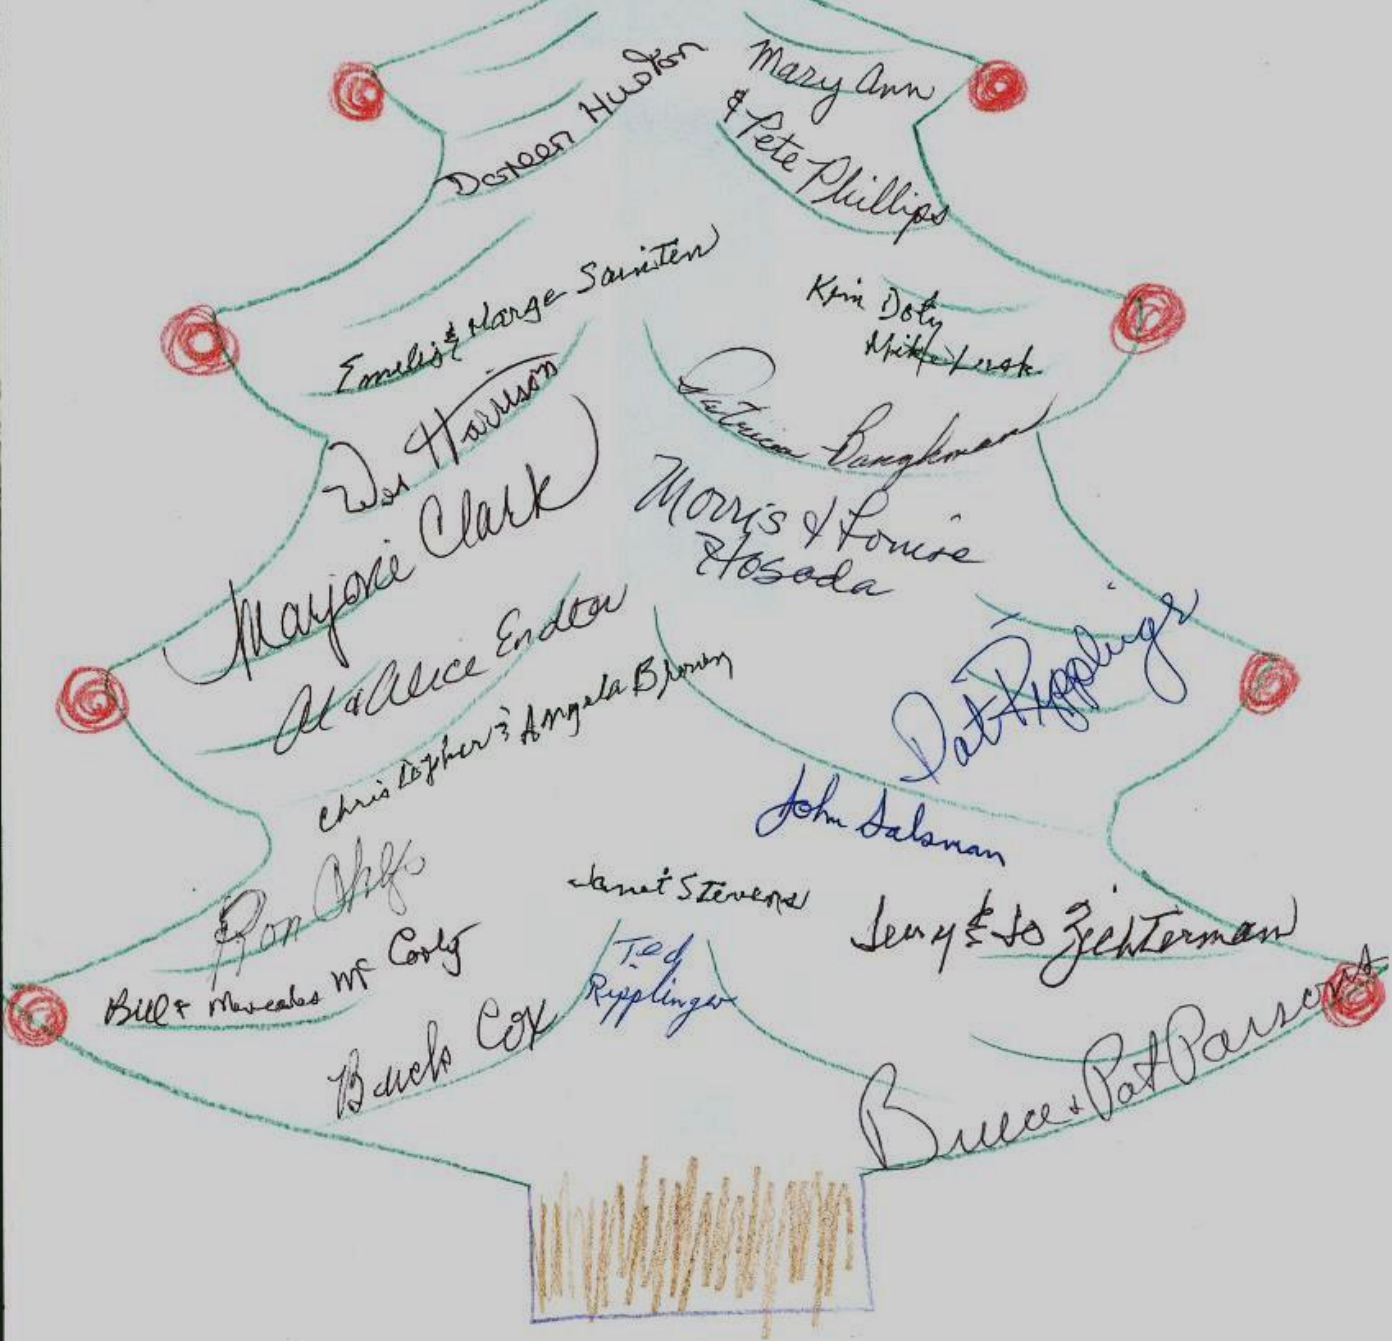 Doreen Huston
Mary Ann
& Pete Phillips
& Marge Sainten
Kim Doty
Mike
Harrison
Patricia Bangkman
Marjorie Clark
Morris & Louise
Hosoda
Al & Alice Endter
Pat Ripplinger
Christopher & Angela Brown
John Salsman
Ron
Janet Stevens
Jerry & Jo Zichterman
Bill & Mercedes McCooly
Ted
Ripplinger
Cox
Bruce & Pat Parsons